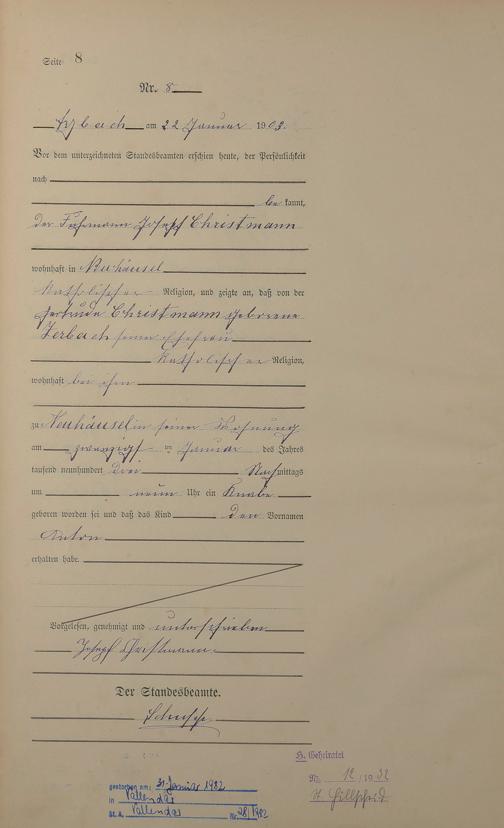 Seite 8
Nr. 8
am 22 Januar 1903.
Vor dem unterzeichneten Standesbeamten erschien heute, der Persönlichkeit
nach
be kannt,
der Fuhrmann Joseph Christmann
wohnhaft in Neuhäusel
katholischer Religion, und zeigte an, daß von der
Gertrude Christmann geborene
Zerbach seine Ehefrau
katholischer Religion,
wohnhaft bei ihm
zu Neuhäusel in seiner Wohnung
am zwanzigst en Januar des Jahres
tausend neunhundert drei Nachmittags
um neun Uhr ein Knabe
geboren worden sei und daß das Kind den Vornamen
Anton
erhalten habe.
Vorgelesen, genehmigt und unterschrieben
Joseph Christmann
Der Standesbeamte.
H. Geheiratet
Nr. 12 / 1932
St. A. Hillscheid
gestorben am: 31. Januar 1982
in Vallendar
St. A. Vallendar Nr. 28/1982